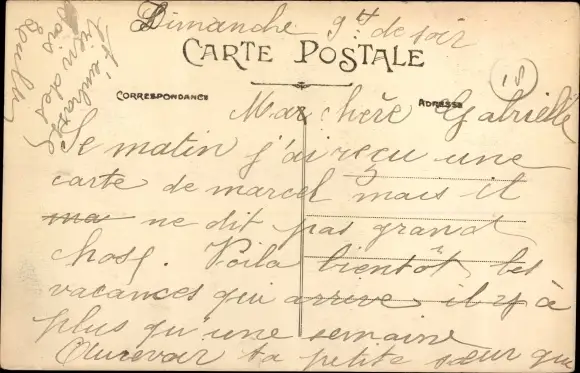 Dimanche 9 de soir
CARTE POSTALE
18
CORRESPONDANCE
ADRESSE
Ma chère Gabrielle
Se matin j'ai reçu une
carte de marcel mais il
ma ne dit pas grand
chose. Voila bientôt les
vacances qui arrive il y à
plus qu'une semaine
Aurevoir ta petite sœur qui
t'embrasse
bien des
fois